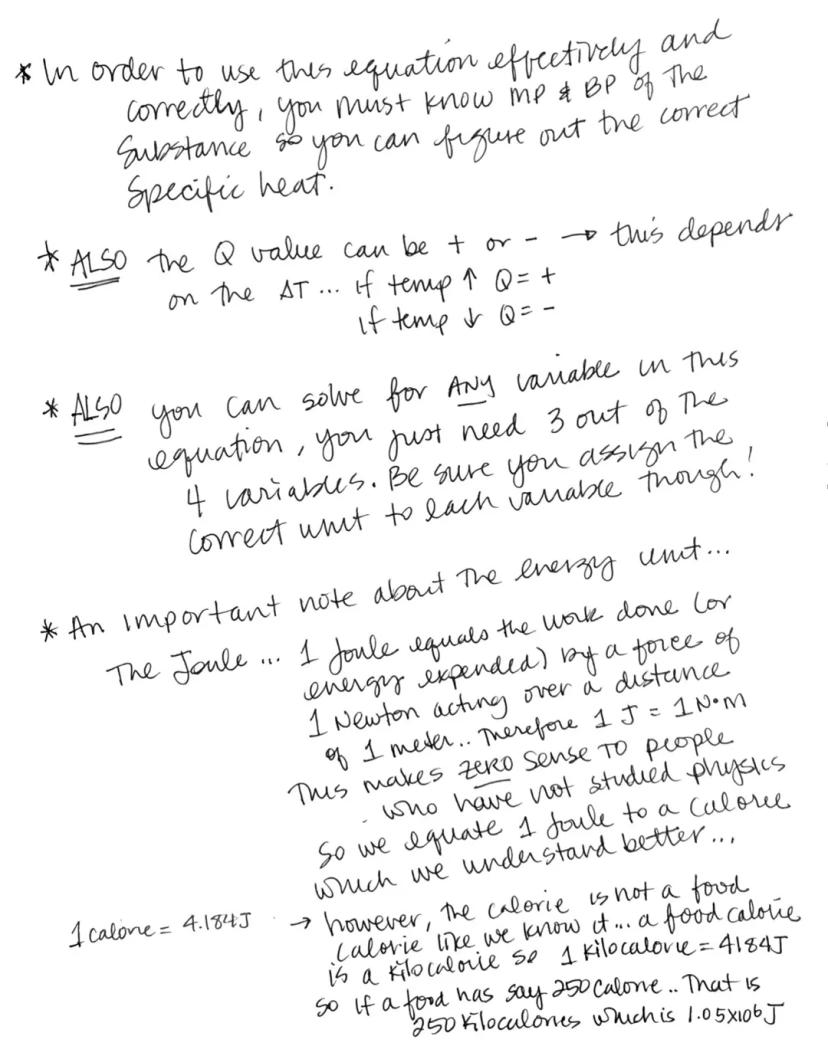 * In order to use this equation effectively and
correctly, you must know MP & BP of the
substance so you can figure out the correct
specific heat.
* ALSO the Q value can be + or - → this depends
on the ΔT ... if temp ↑ Q = +
if temp ↓ Q = -
* ALSO you can solve for ANY variable in this
equation, you just need 3 out of the
4 variables. Be sure you assign the
correct unit to each variable though!
* An important note about the energy unit...
The Joule ... 1 Joule equals the work done (or
energy expended) by a force of
1 Newton acting over a distance
of 1 meter.. Therefore 1 J = 1 N•m
This makes ZERO sense to people
who have not studied physics
so we equate 1 Joule to a calorie
which we understand better...
1 calorie = 4.184J → however, the calorie is not a food
calorie like we know it... a food calorie
is a kilocalorie so 1 kilocalorie = 4184J
so if a food has say 250 calorie.. That is
250 kilocalories which is 1.05x106 J